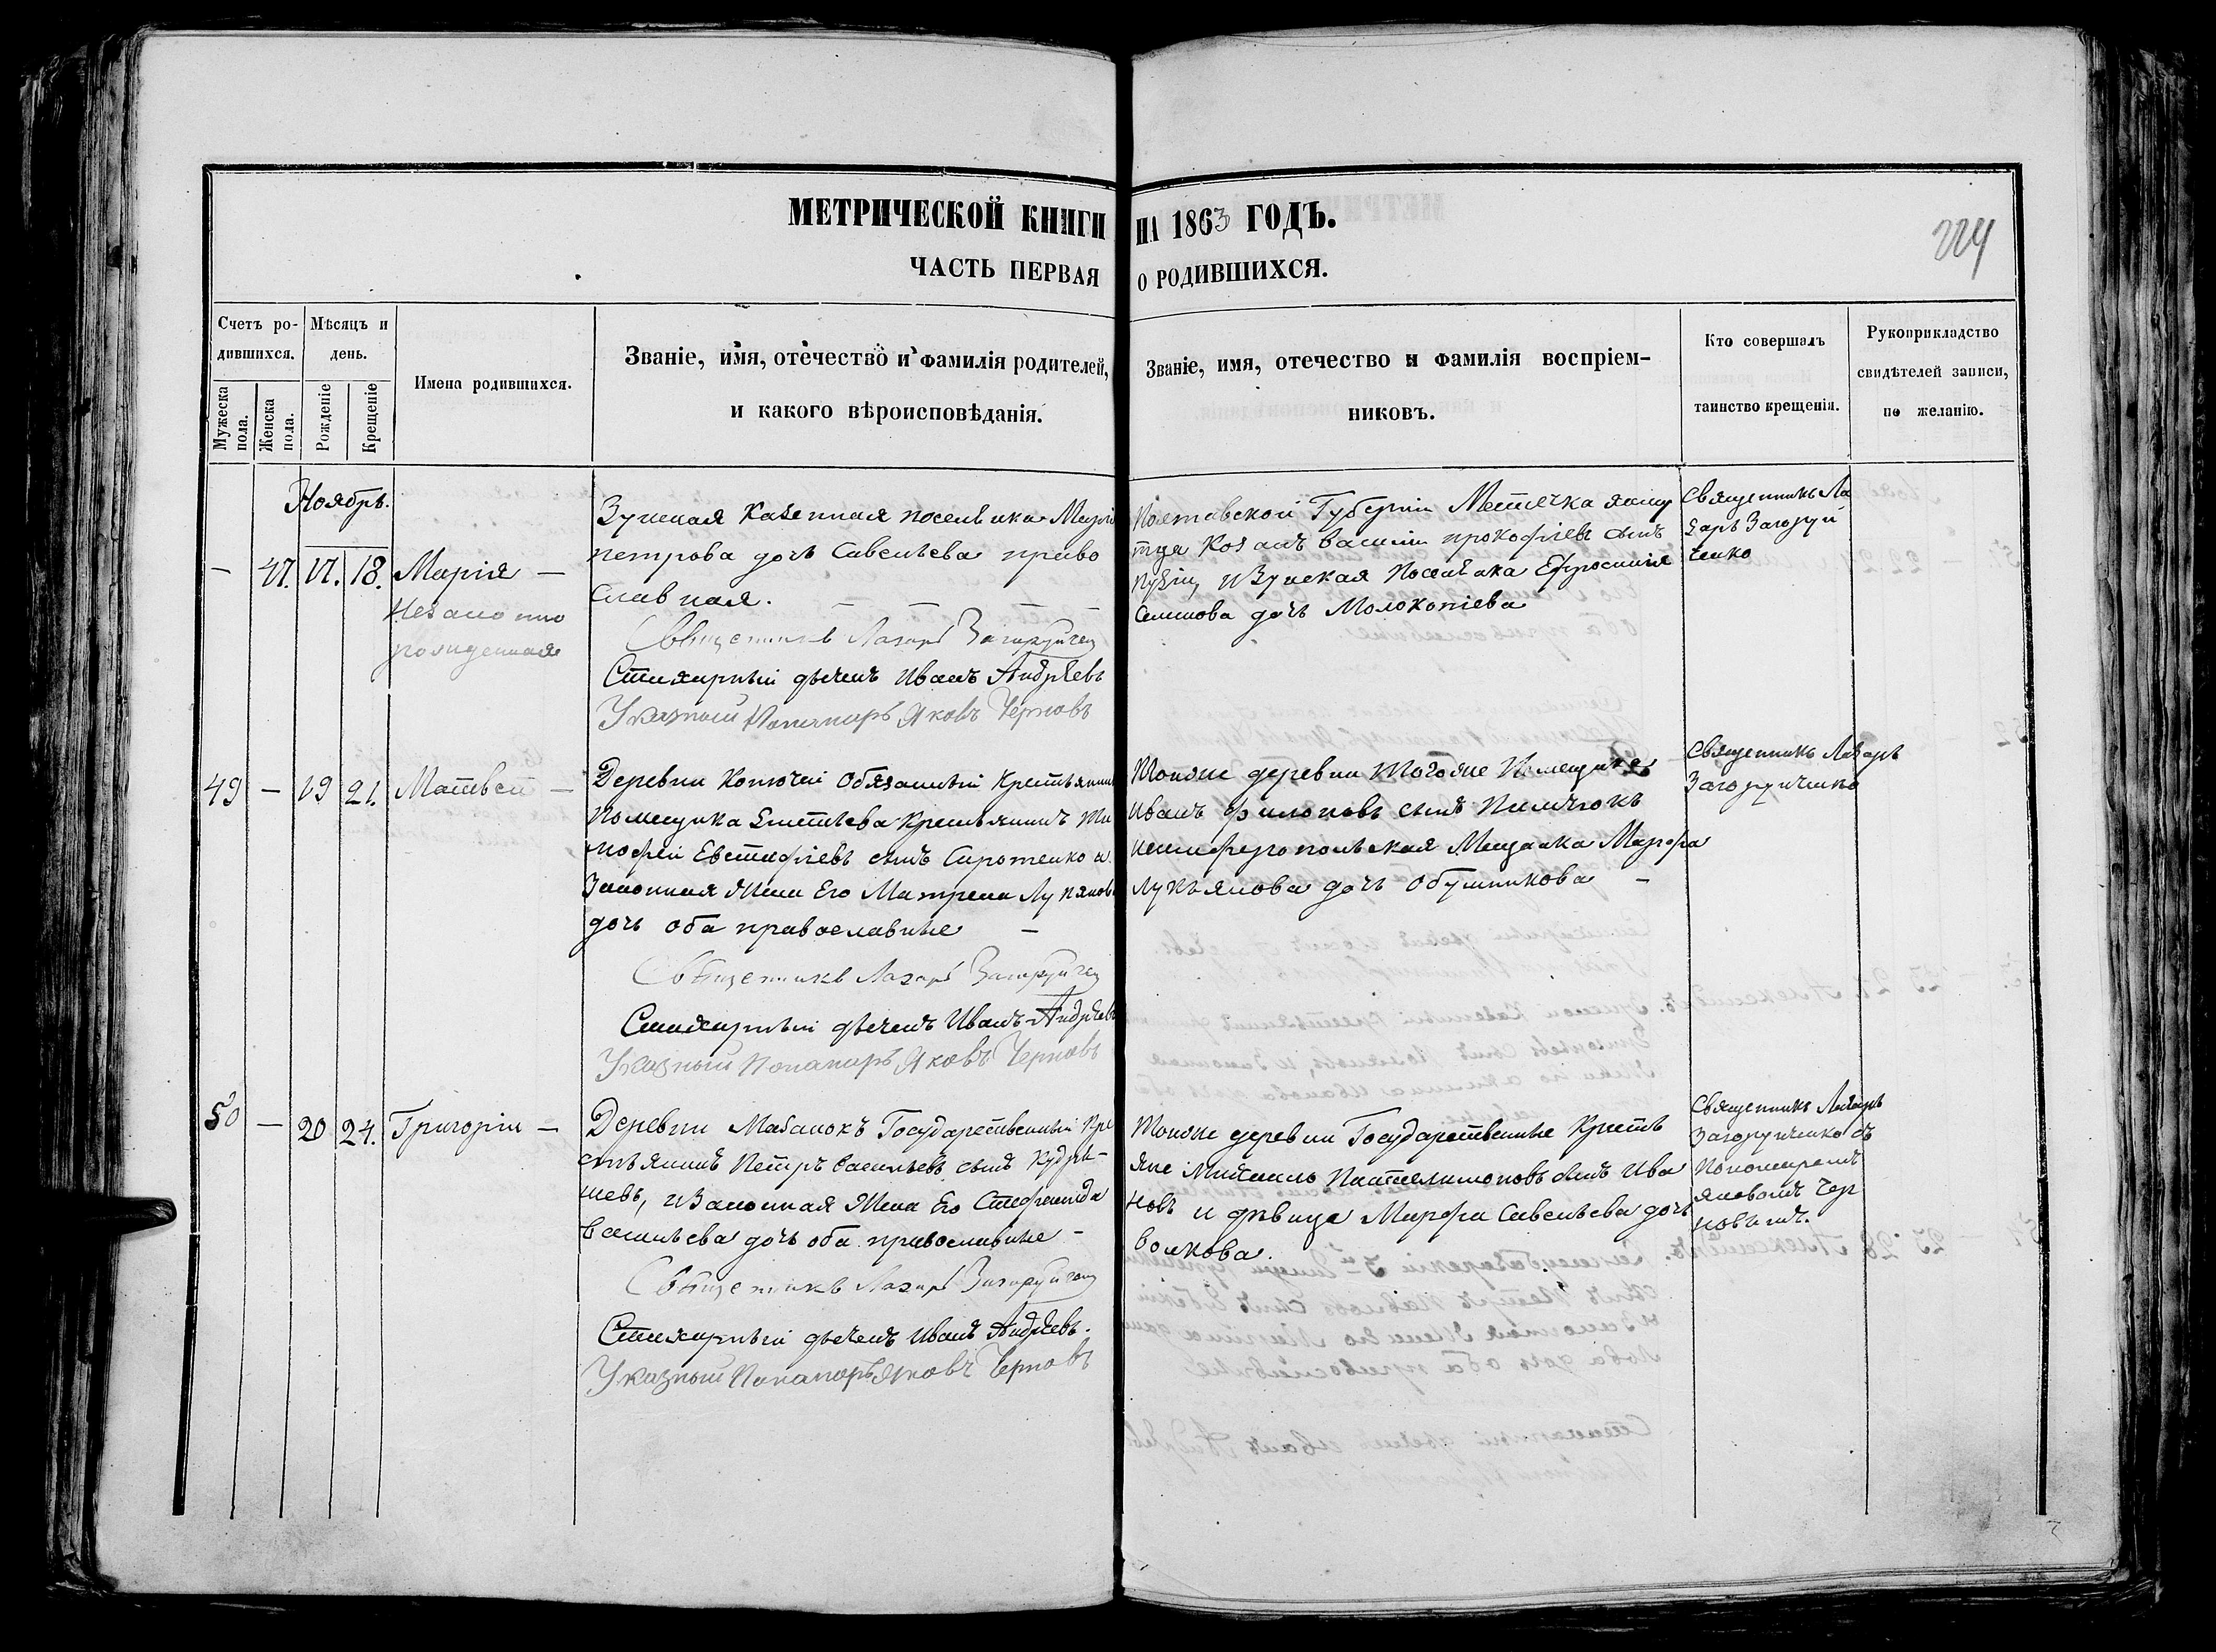 МЕТРИЧЕСКОЙ КНИГИ НА 1863 ГОДЪ.
ЧАСТЬ ПЕРВАЯ О РОДИВШИХСЯ.
224
Счетъ ро-
дившихся.
Мужеска
пола.
Женска
пола.
Мѣсяцъ и
день.
Рожденіе
Крещеніе
Имена родившихся.
Званіе, имя, отечество и фамилія родителей,
и какого вѣроисповѣданія.
Званіе, имя, отечество и фамилія воспріем-
никовъ.
Кто совершалъ
таинство крещенія.
Рукоприкладство
свидѣтелей записи,
по желанію.
Ноябрь.
— 47. 17. 18. Марія —
Незаконно
рожденная
Зуйская Казенная поселянка Марія
петрова дочь Савельева право
славная.
Священникъ Лазарь Загоруйченко
Стихарный дьячекъ Иванъ Андрѣевъ
Указный Пономарь Яковъ Черновъ
Полтавской Губерніи Местечка
Козакъ василій прокофіевъ сынъ
и Зуйская Поселянка Ефросинія
Семенова дочь
Священникъ Ла
зарь Загоруй
ченко
49 — 19 21. Матвей —
Деревни Обязанный Крестьянинъ
Помещика Крестьянинъ Ти
мофей Евстафіевъ сынъ Сиротенко и
Законная Жена Его Матрена Лукянова
дочь оба православные —
Священникъ Лазарь Загоруйченко
Стихарный дьячекъ Иванъ Андрѣевъ
Указный Пономарь Яковъ Черновъ
Тойже деревни тогоже Помещика
Иванъ Филоповъ сынъ
симферопольская Мещанка Марфа
Лукьянова дочь —
Священникъ Лазарь
Загоруйченко
50 — 20 24. Григорій —
Деревни Мазанокъ Государственный Кре
стьянинъ Петръ васильевъ сынъ Кудря-
шевъ, и Законная Жена Его Стефанида
васильева дочь оба православные —
Священникъ Лазарь Загоруйченко
Стихарный дьячекъ Иванъ Андрѣевъ.
Указный Пономарь Яковъ Черновъ
Тойже деревни Государственные Кресть
яне Михаилъ Пантелимоновъ сынъ Ива
новъ и девица Марфа Савельева дочь
волкова.
Священникъ Лазарь
Загоруйченко съ
Пономаремъ
Яковомъ Чер
новымъ.